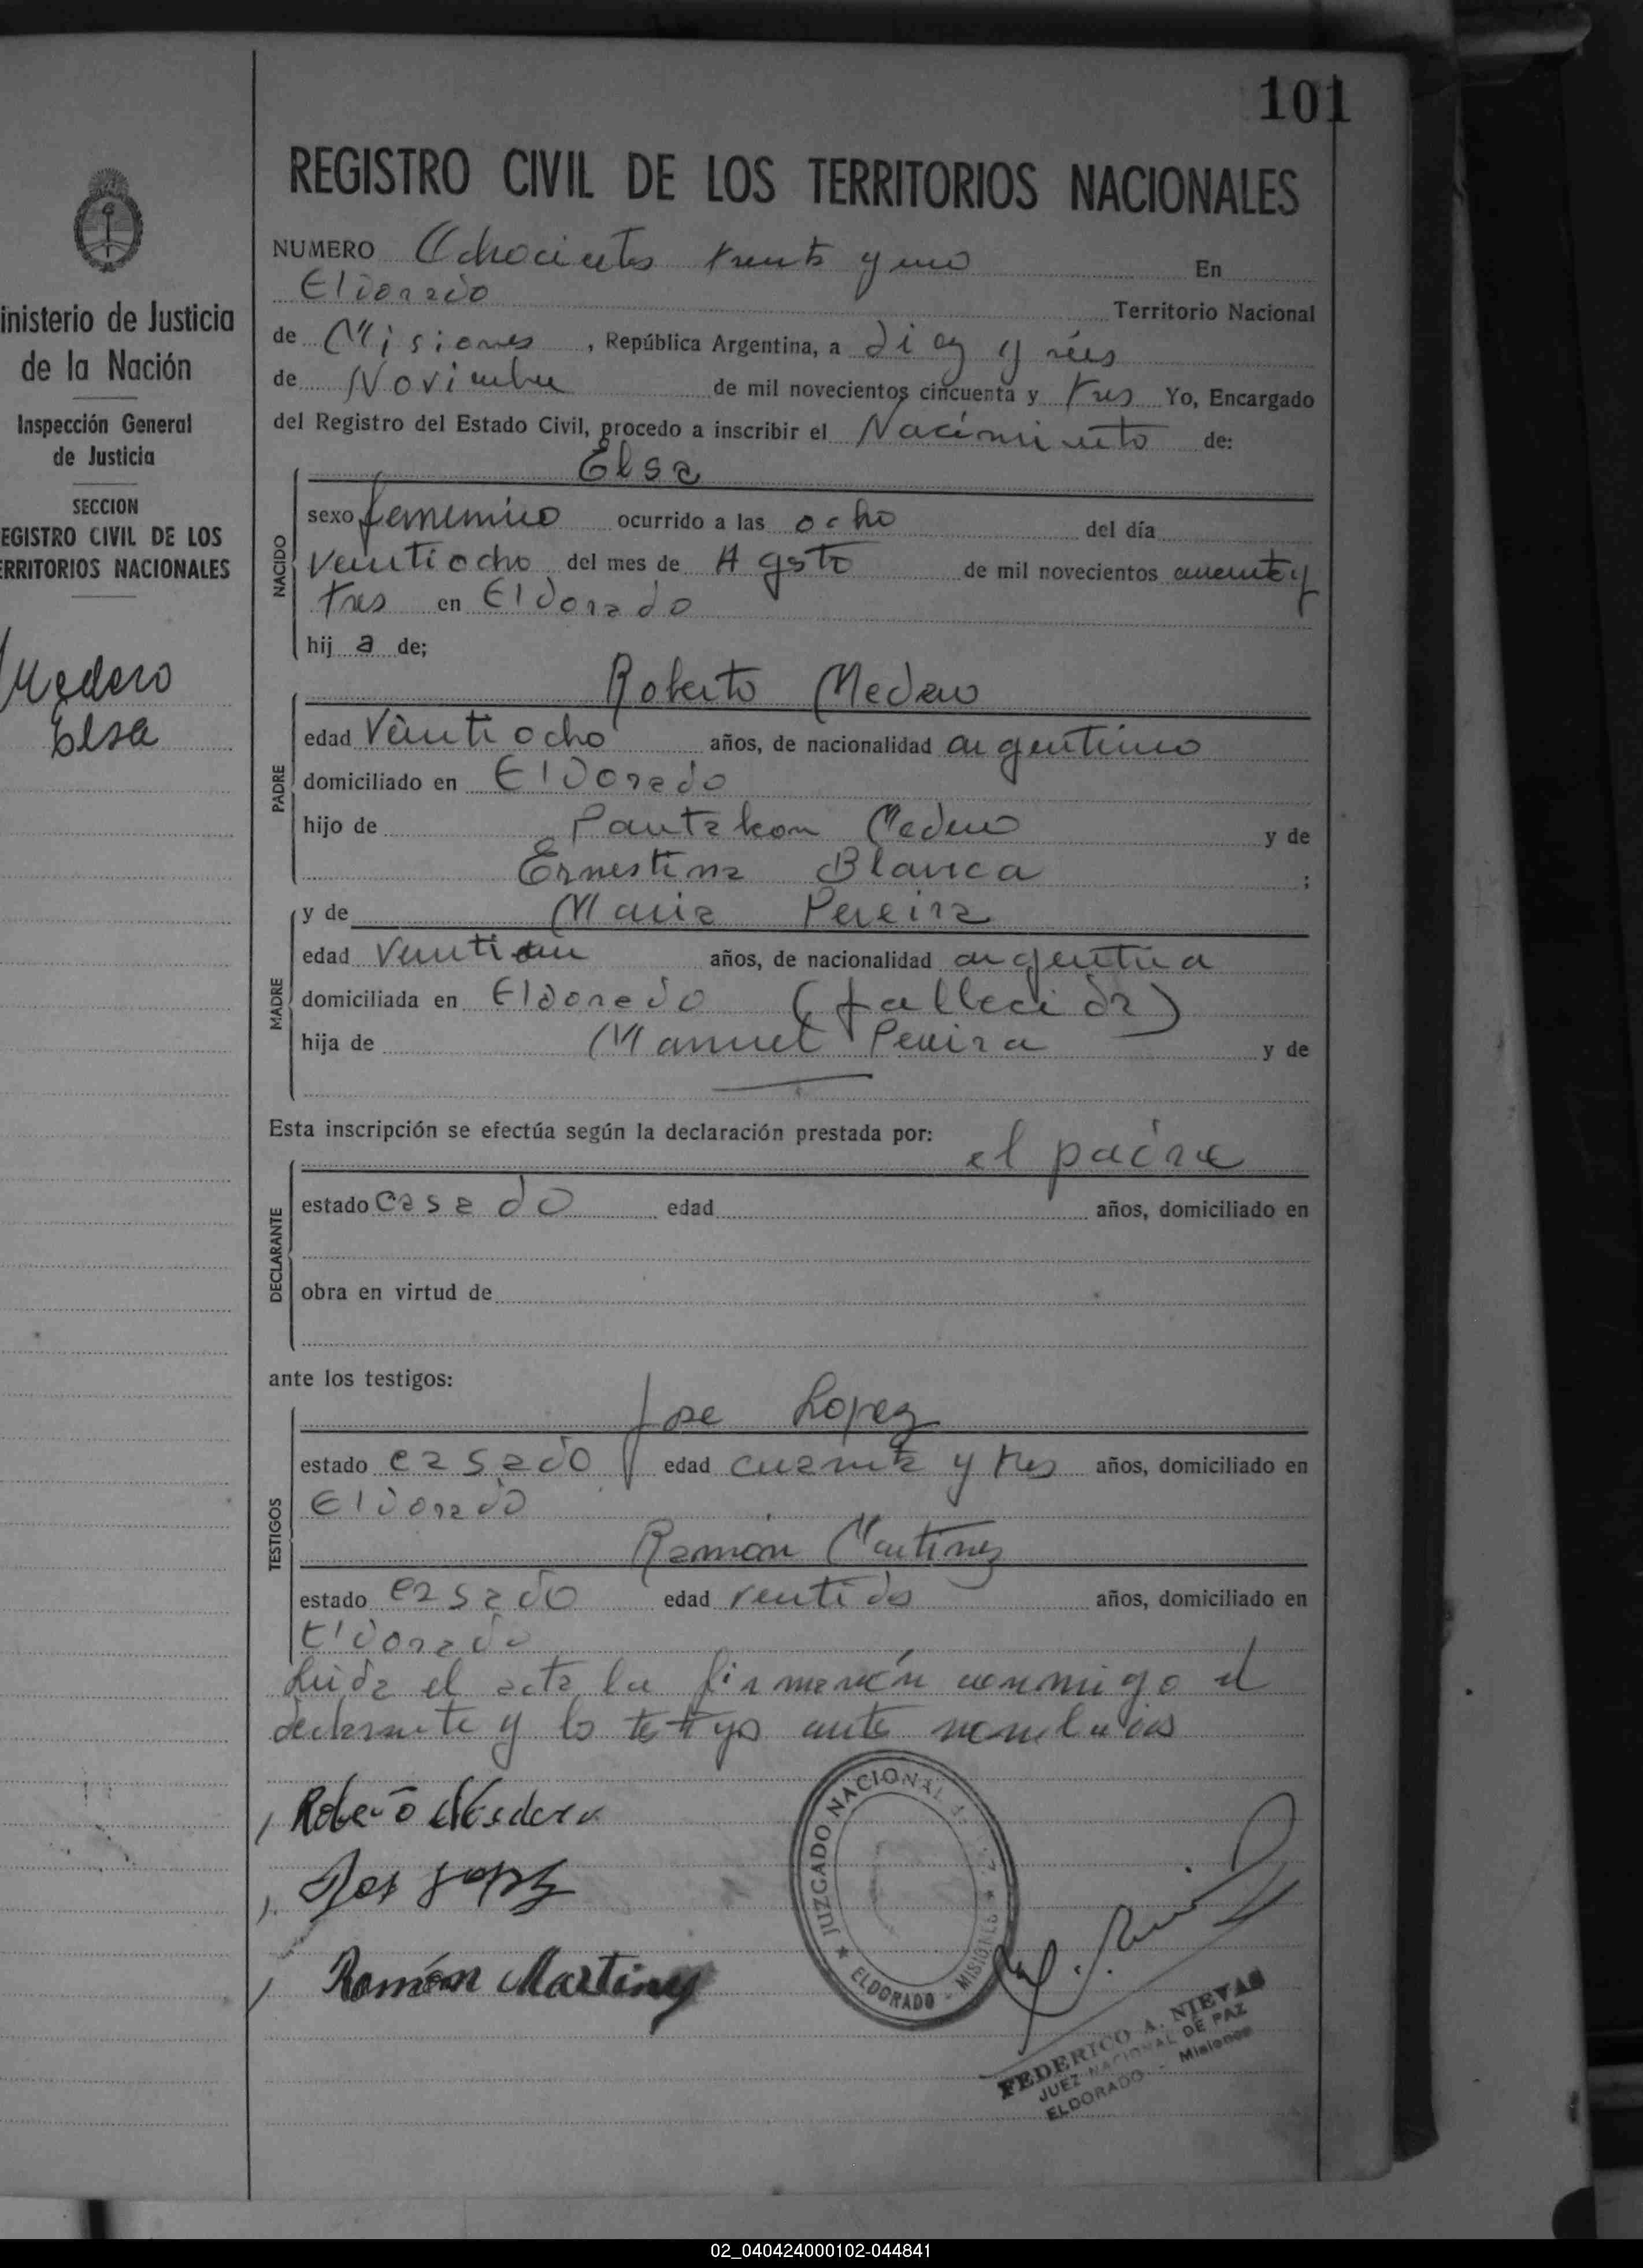 101
REGISTRO CIVIL DE LOS TERRITORIOS NACIONALES
inisterio de Justicia
de la Nación
Inspección General
de Justicia
SECCION
EGISTRO CIVIL DE LOS
ERRITORIOS NACIONALES
Medero
Elsa
NUMERO Ochocientos treinta y uno En
Eldorado Territorio Nacional
de Misiones, República Argentina, a diez y seis
de Noviembre de mil novecientos cincuenta y tres Yo, Encargado
del Registro del Estado Civil, procedo a inscribir el Nacimiento de:
Elsa
NACIDO
sexo femenino ocurrido a las ocho del día
veintiocho del mes de Agsto de mil novecientos cuarenta y
tres en Eldorado
hija de;
Roberto Medero
PADRE
edad Veintiocho años, de nacionalidad argentino
domiciliado en Eldorado
hijo de Pantaleon Medero y de
Ernestina Blanca ;
MADRE
y de Maria Pereira
edad años, de nacionalidad argentina
domiciliada en Eldorado (fallecida)
hija de Manuel Pereira y de
Esta inscripción se efectúa según la declaración prestada por:
el padre
DECLARANTE
estado casado edad años, domiciliado en
obra en virtud de
ante los testigos:
Jose Lopez
TESTIGOS
estado casado edad cuarenta y tres años, domiciliado en
Eldorado
Ramón Martinez
estado casado edad ventidos años, domiciliado en
Eldorado
Leida el acta la firmarón conmigo el
declarante y los testigos ante nombrados
Roberto Medero
Jose Lopez
Ramón Martinez
JUZGADO NACIONAL DE PAZ
ELDORADO - MISIONES
FEDERICO A. NIEVAS
JUEZ NACIONAL DE PAZ
ELDORADO - Misiones
02_040424000102-044841